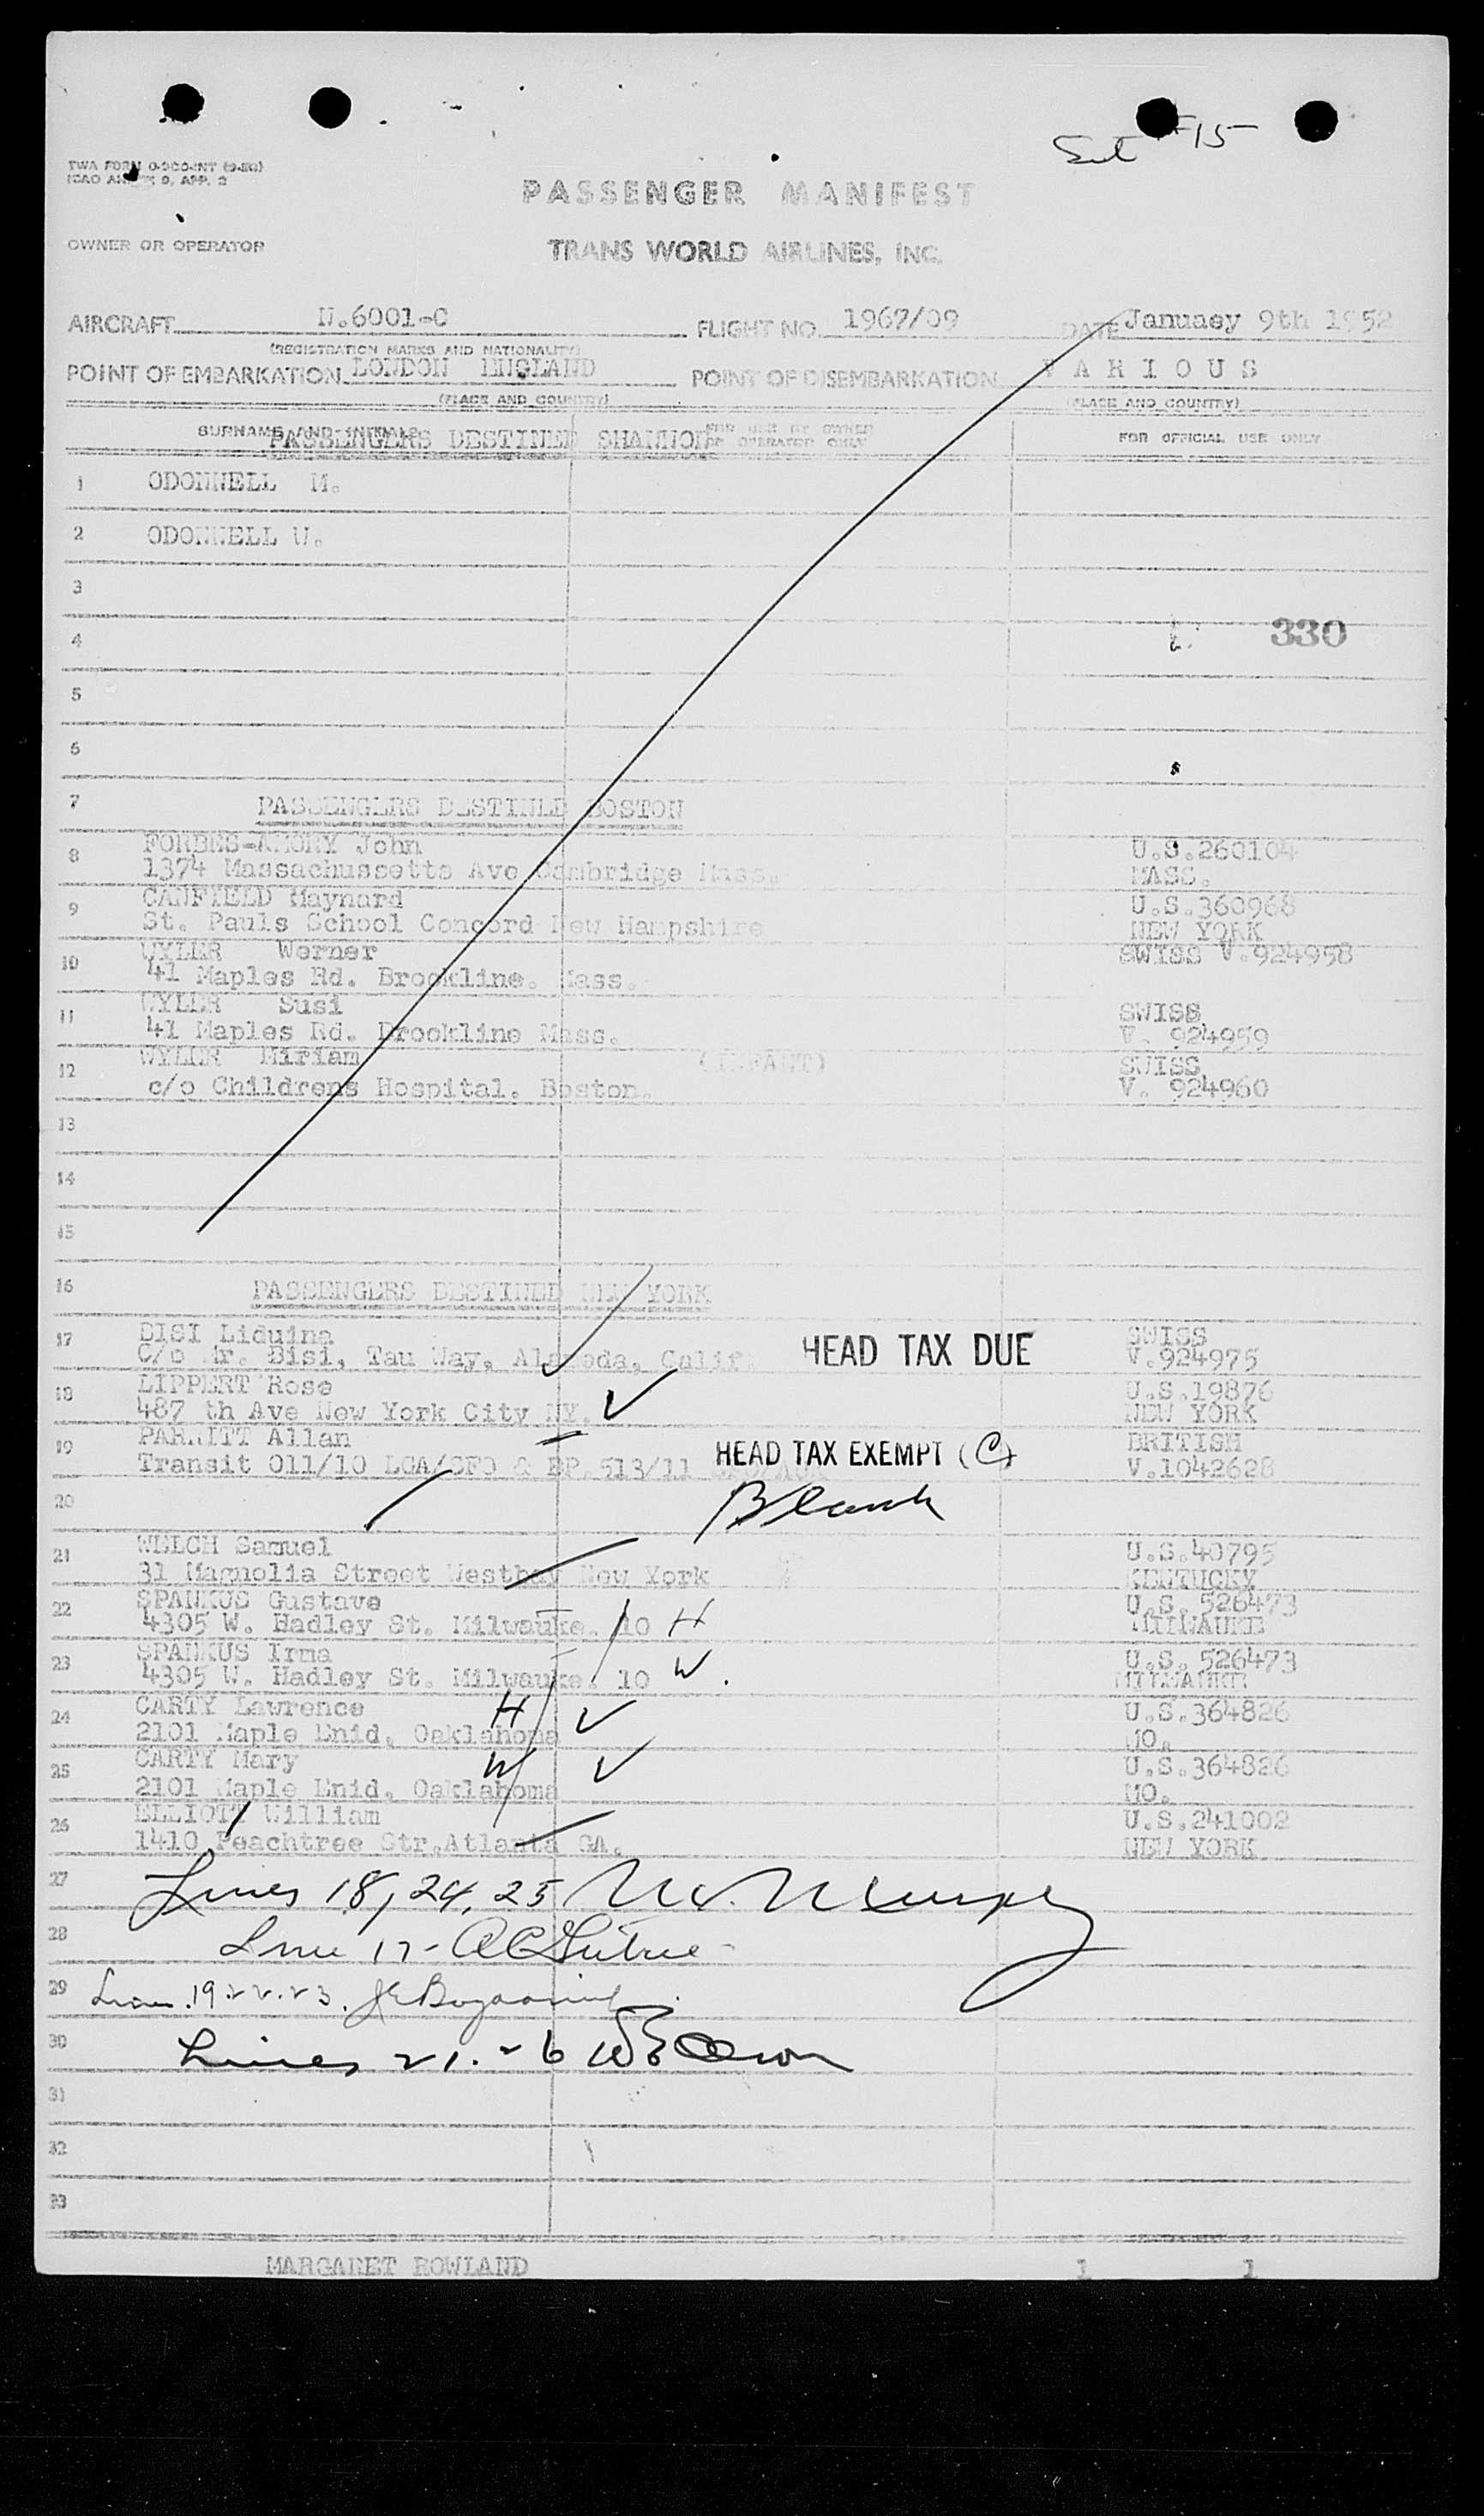 Set #15
TWA FORM O-300-INT (9-50)
ICAO ANNEX 9, APP. 2
PASSENGER MANIFEST
OWNER OR OPERATOR TRANS WORLD AIRLINES, INC.
AIRCRAFT N.6001-C FLIGHT NO. 1967/09 DATE Januasy 9th 1952
(REGISTRATION MARKS AND NATIONALITY)
POINT OF EMBARKATION LONDON ENGLAND POINT OF DISEMBARKATION V A R I O U S
(PLACE AND COUNTRY) (PLACE AND COUNTRY)
SURNAME AND INITIALS FOR USE BY OWNER OR OPERATOR ONLY FOR OFFICIAL USE ONLY
PASSENGERS DESTINED SHANNON
1 ODONNELL M.
2 ODONNELL W.
3
4 330
5
6
7 PASSENGERS DESTINED BOSTON
8 FORBES-AMORY John U.S.260104
1374 Massachussetts Ave Cambridge Mass. MASS.
9 CANFIELD Maynard U.S.360968
St. Pauls School Concord New Hampshire NEW YORK
10 WYLER Werner SWISS V.924958
41 Maples Rd. Brookline. Mass.
11 WYLER Susi SWISS
41 Maples Rd. Brookline Mass. V. 924959
12 WYLER Miriam (INFANT) SWISS
c/o Childrens Hospital. Boston. V. 924960
13
14
15
16 PASSENGERS DESTINED NEW YORK
17 BISI Liduina HEAD TAX DUE SWISS
C/o Mr. Bisi, Tau Way, Alameda, Calif. V.924975
18 LIPPERT Rose U.S.19876
487 th Ave New York City NY. NEW YORK
19 PARMITT Allan HEAD TAX EXEMPT (C) BRITISH
Transit 011/10 LGA/SFO & BP.513/11 V.1042628
20 Blank
21 WELCH Samuel U.S.40795
31 Magnolia Street Westbay New York KENTUCKY
22 SPANKUS Gustave U.S. 526473
4305 W. Hadley St. Milwauke. 10 H MILWAUKE
23 SPANKUS Irma U.S. 526473
4305 W. Hadley St. Milwauke. 10 W. MILWAUKE
24 CARTY Lawrence H U.S.364826
2101 Maple Enid, Oaklahoma MO.
25 CARTY Mary W U.S.364826
2101 Maple Enid, Oaklahoma MO.
26 ELLIOTT William U.S.241002
1410 Peachtree Str.Atlanta GA. NEW YORK
27 Lines 18, 24, 25
28 Line 17 -
29 Lines 19.22.23.
30 Lines 21.26
31
32
33
MARGARET ROWLAND 1 1